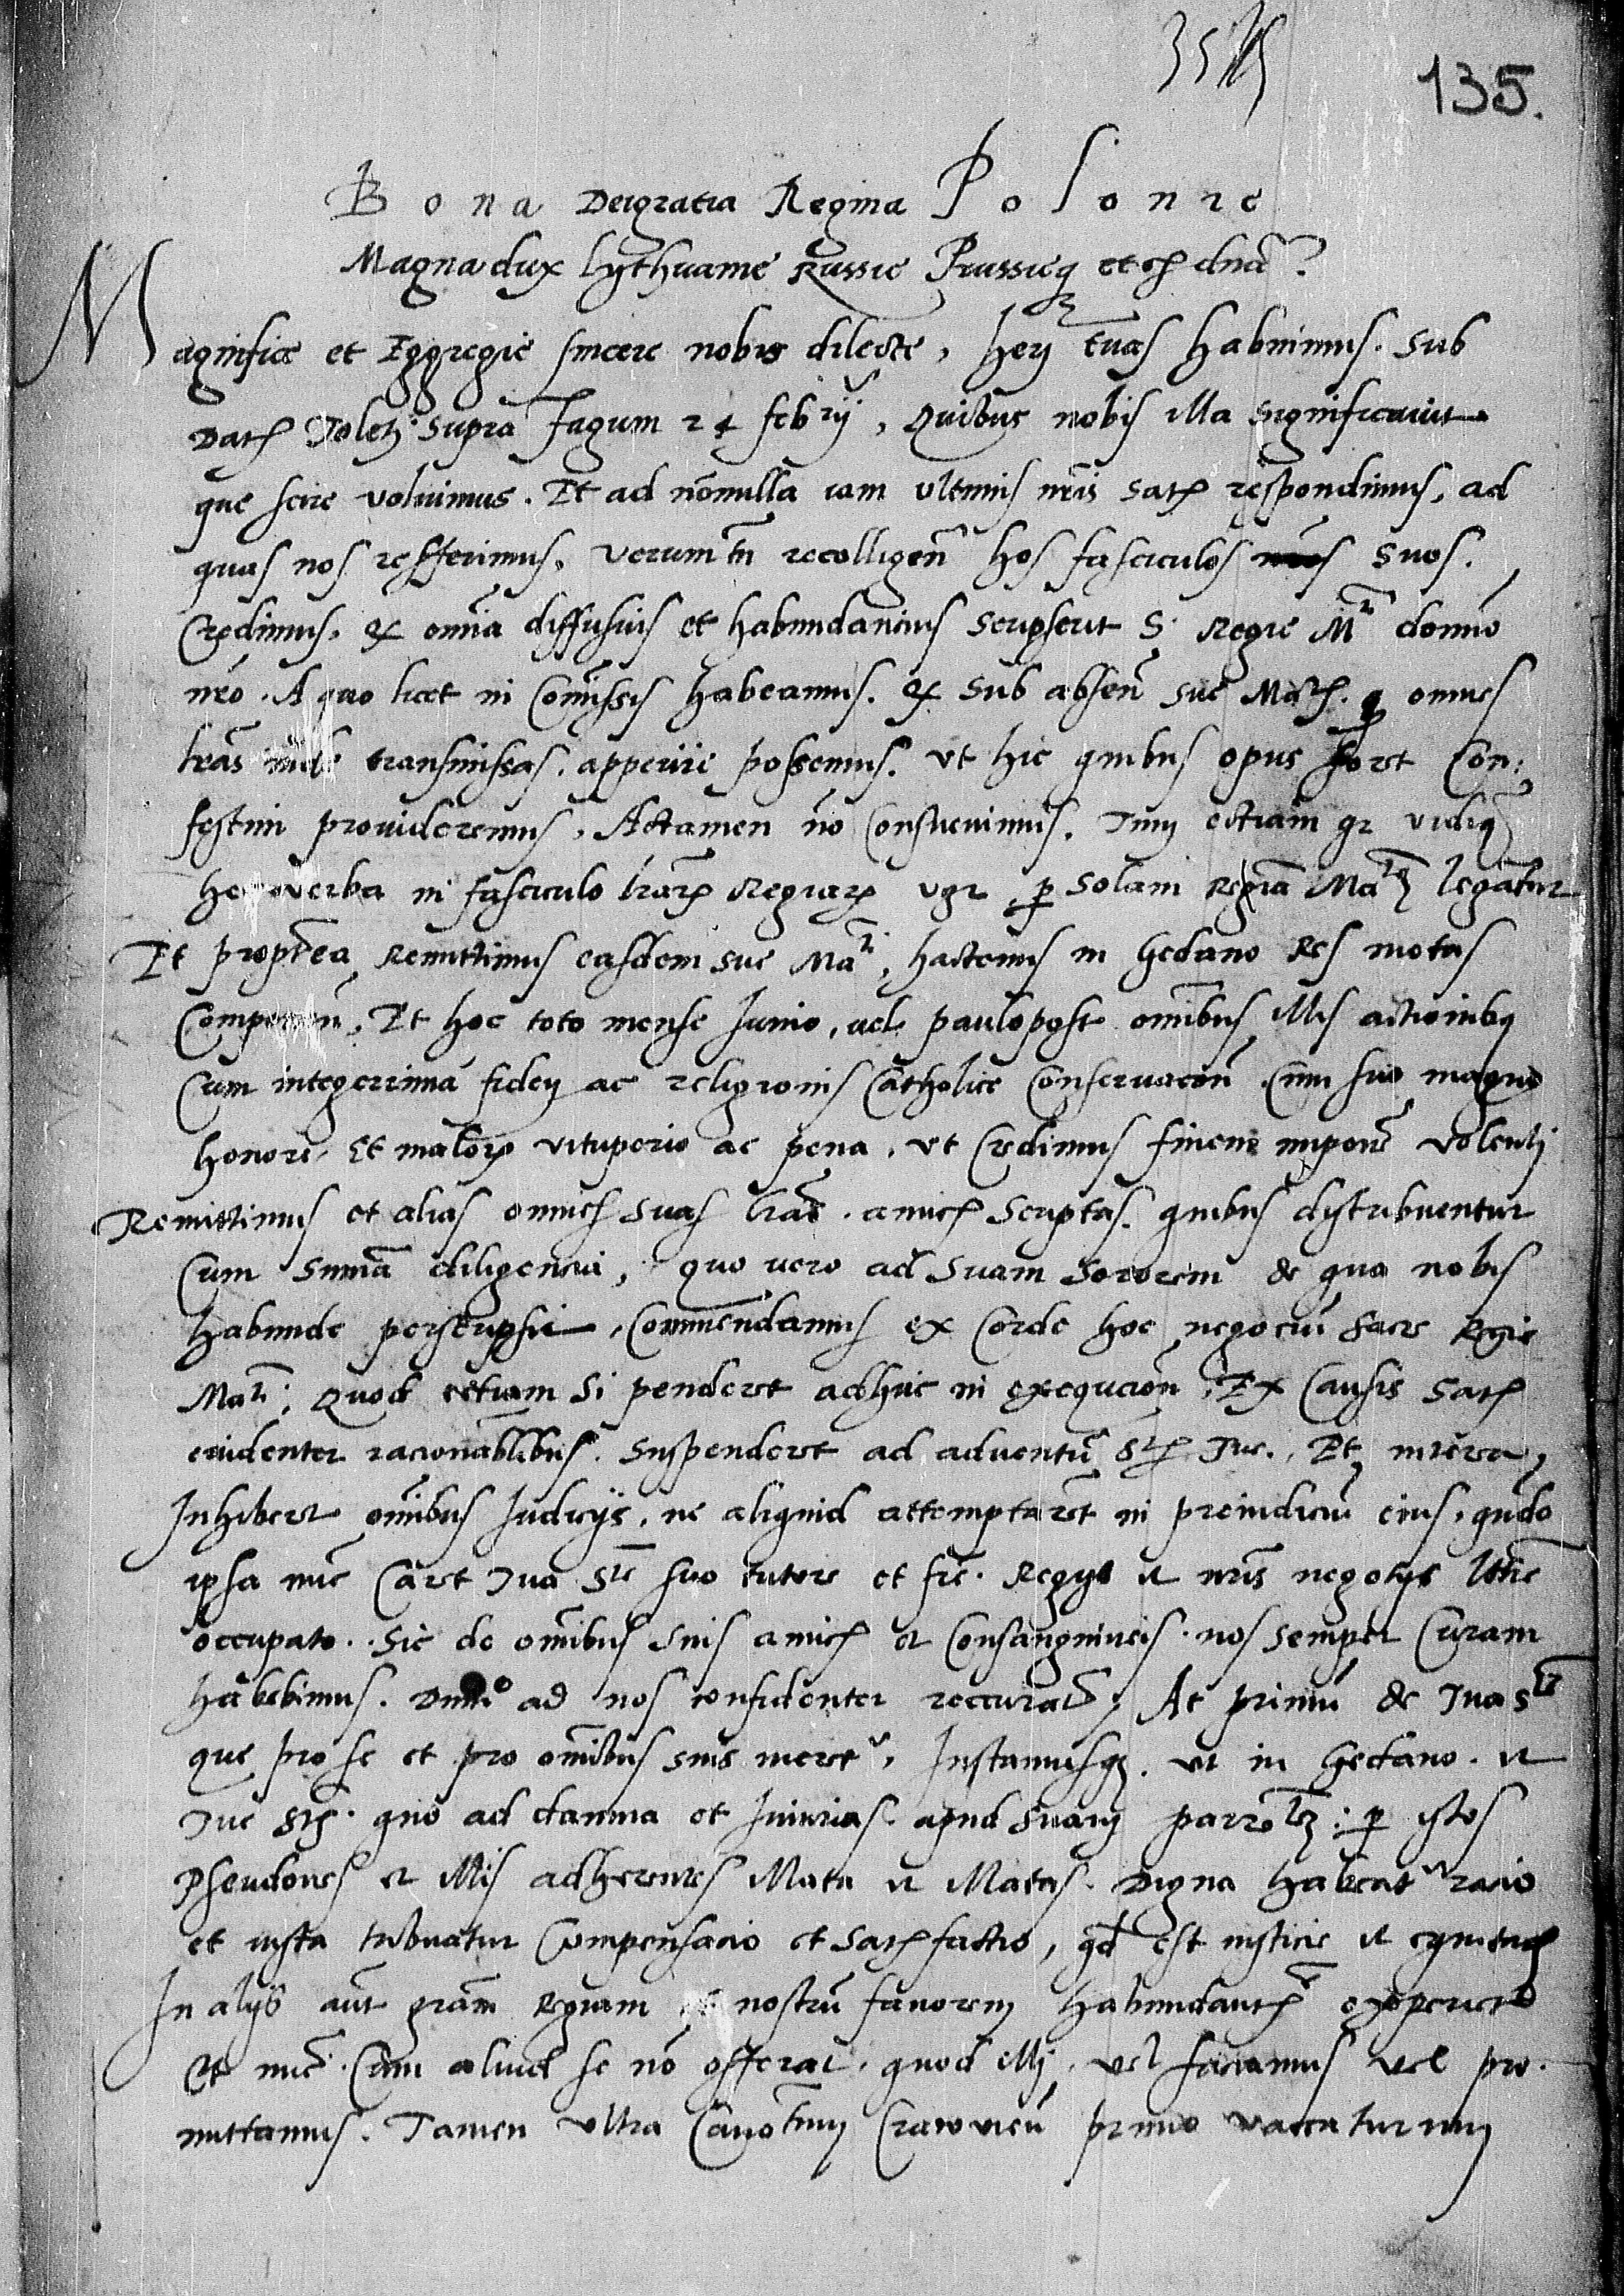 135.
Bona Dei gratia Regina Polonie
Magna dux Lythuanie Russie Prussieq etc dnã
Magnifice et Eggregie sincere nobis dilecte, hery tuas habuimus. Sub
Dat Toletj supra Tagum 24 febrij, Quibus nobis illa significavit
que scire voluimus. Et ad nõnulla iam ultimis nr̃is Satis respondimus, ad
quas nos refferimus, verumtñ recolligeñ hos fasciculos suos.
Credimus, omĩa diffusius et habundancius scripserit S. Regie Mti domño
nr̃o. A quo licet in Com̃issis habeamus. Sub abseñ sue Matis. omnes
lrãs transmissas, apperire possemus. ut hic quibus opus foret Con:
festim provideremus, Actamen nõ Consuevimus. Tum ectiam qr vidiq
hec verba in fasciculo lrãr Regiar p Solam Regiã Matẽ legãtur
Et proptẽa Remittimus easdem sue Mati, hactenus in Gedano Res motas
Et hoc toto mense Junio, vel paulopost om̃ibus illis actionibq
Cum integerrima fidey ac religionis Catholice Conservacõn Cum suo magno
honore, Et malor vituperio ac pena, ut Credimus finem imponẽ volentj
Remittimus et alias omnes suas lrãs amicis scriptas. quibus distribuentur
Cum summã diligencia, quo vero ad Suam Sororem de qua nobis
habunde perscripsit, Com̃endamus ex Corde hoc negociũ Sacre Regie
Mati; Quod ectiam si penderet adhuc in exequcion, Ex Causis Satis
evidenter racionabilibus. Suspenderet ad adventũ Stis Tue. Et interea,
Inhiberet om̃ibus Judicijs, ne aliquid attemptaret in preiudiciũ eius, qñdo
ipsa nũc Caret Tua Ste suo tutore et frẽ. Regys et nr̃is negotys
occupato. Sic de om̃ibus suis amicis et Consanguineis. nos semper Curam
habebimus. ad nos confidenter reccurat, At primũ de Tua Ste
que pro se et pro om̃ibus suis meret, Instamusq. ut in Gedano. et
Tue Stis. quo ad damna et Iniurias apud suam: p istos
Pseudones et illis adherentes Mota et Motas. Digna habeat racio
et iusta tribuatur Compensacio et Satisfactio, qd est iusticie et equitatis
In alijs aũt grãm Regiam et nostrũ favorem habundant experiet
Et nũc. Cum aliud se nõ offerat, quod illj, vel faciamus vel pro.
mittamus. Tamen ultra Canotum Cracovieñ primo vaccaturum